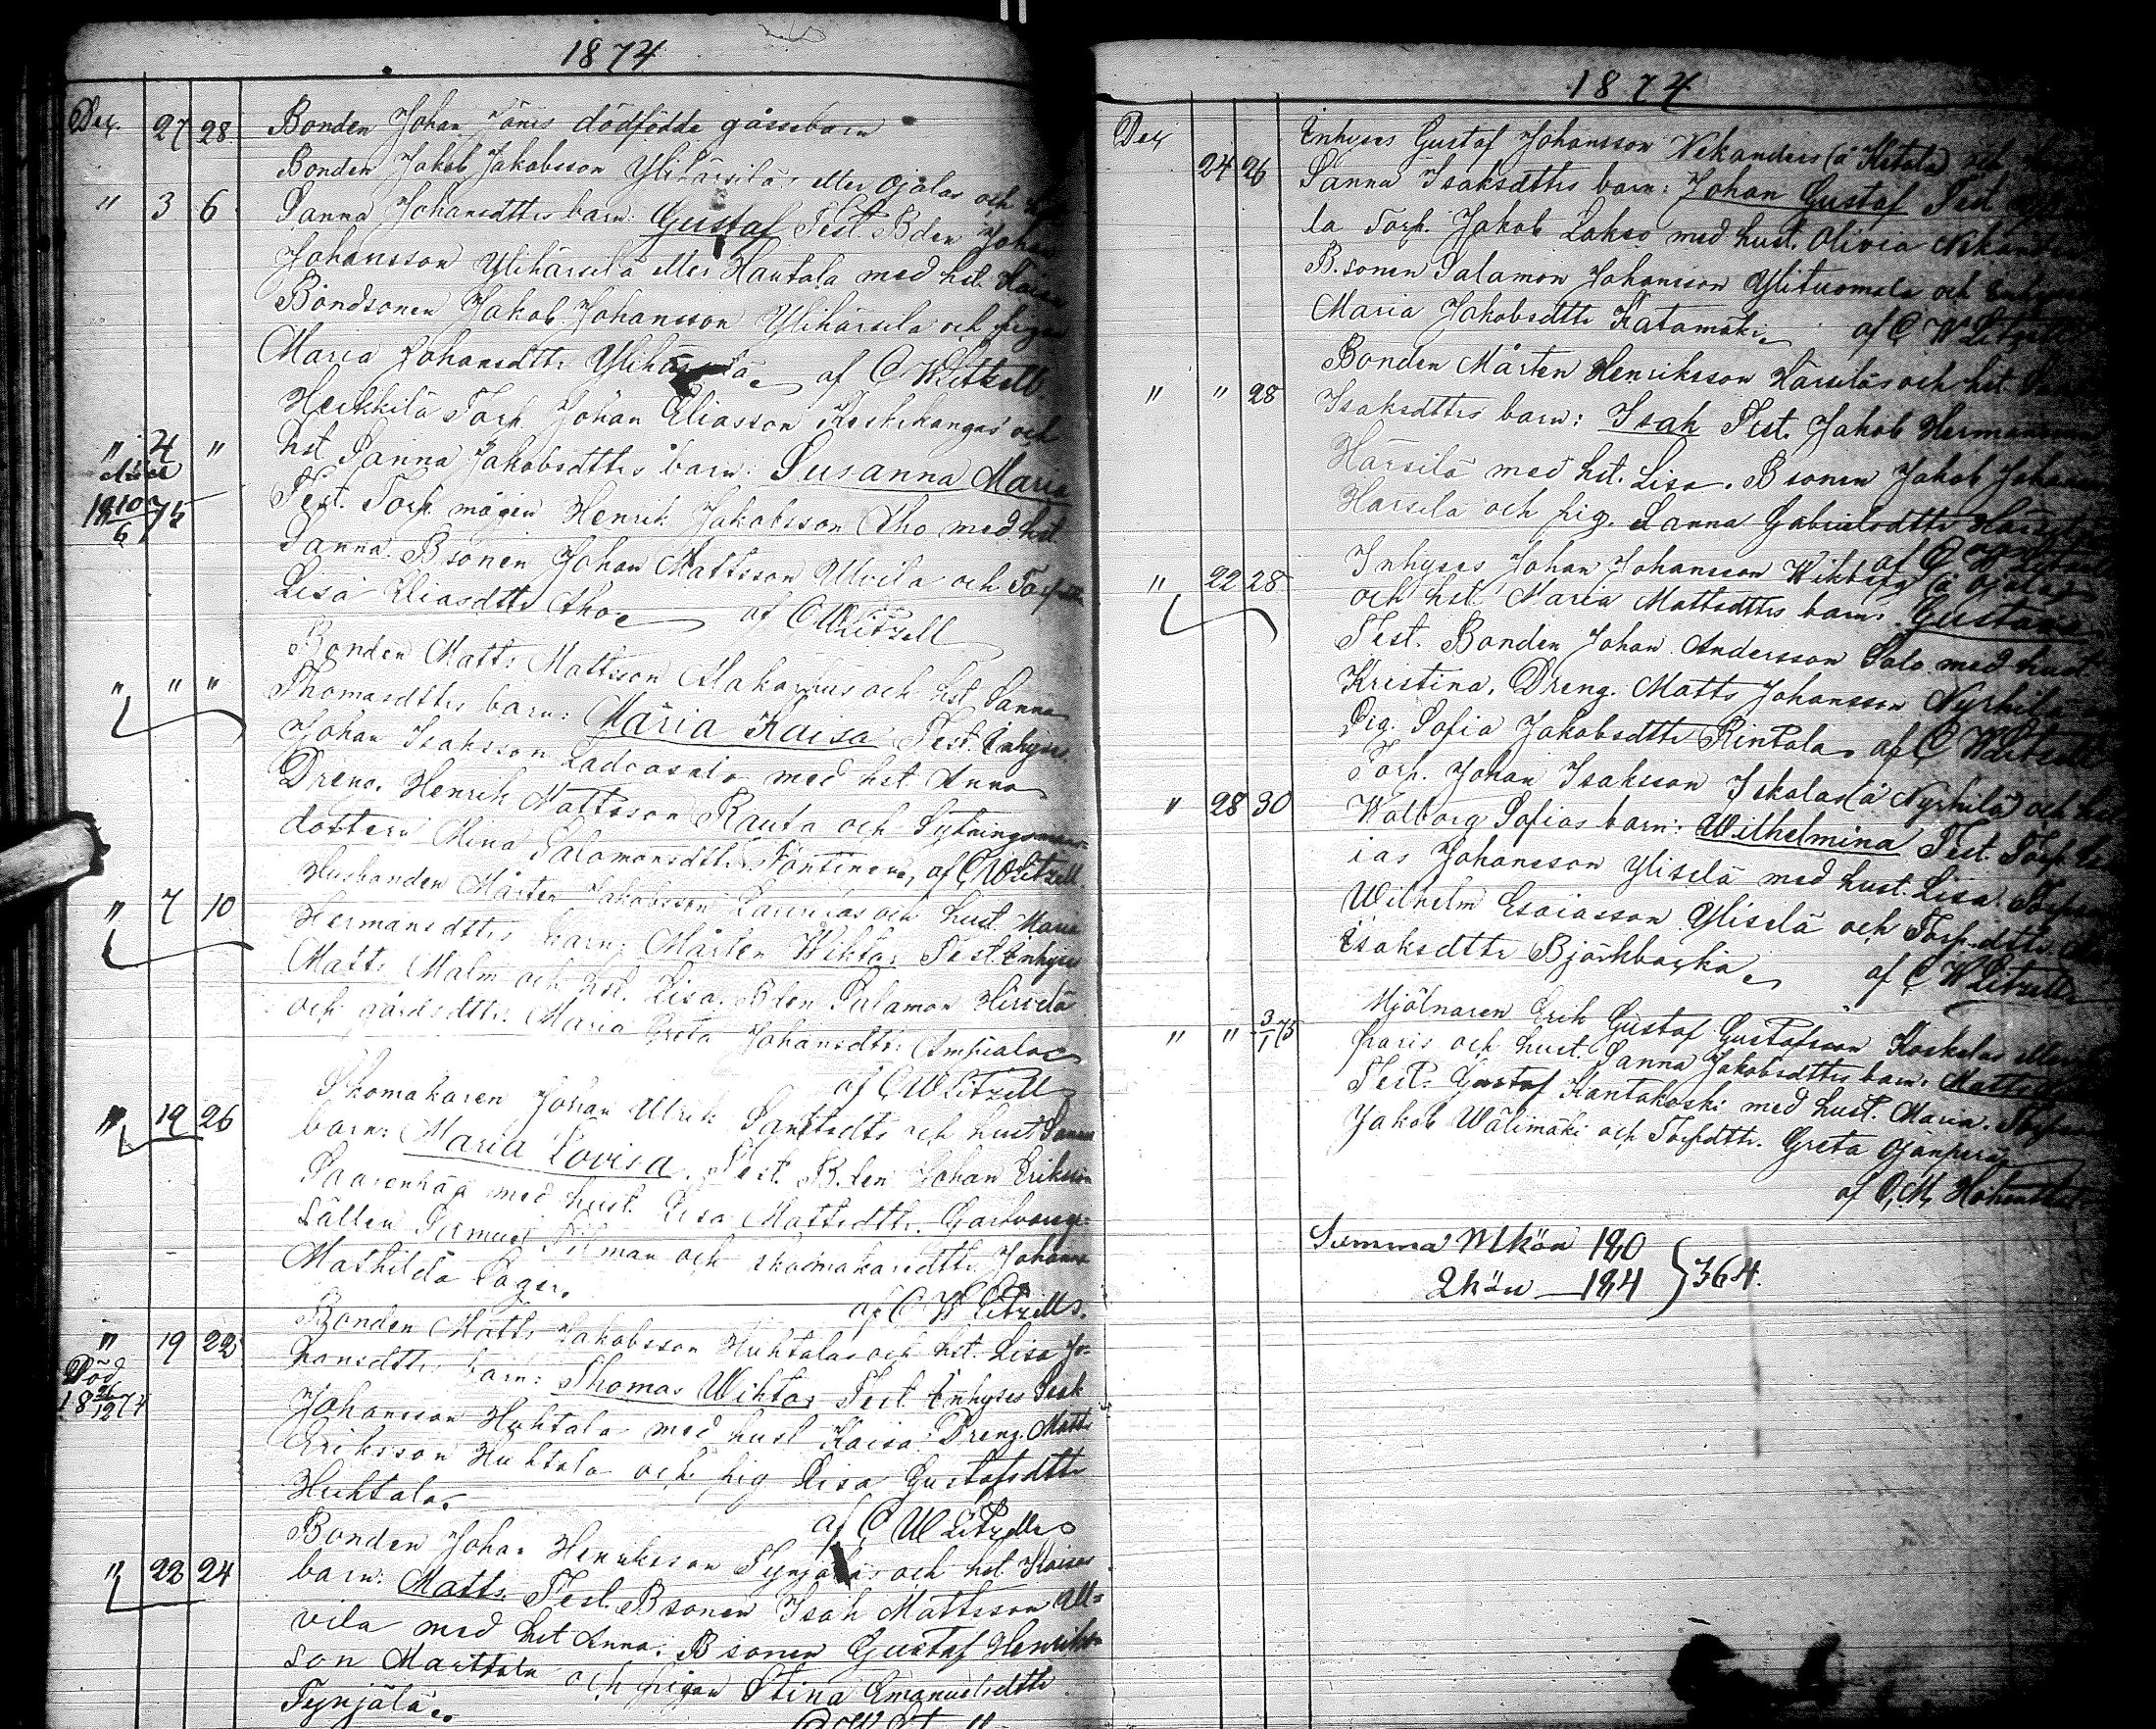 1874
Dec. 27 28. Bonden Johan Jänis dödfödda gossebarn
Bonden Jakob Jakobsson Ylihärsiläs eller Ojalas och
" 3 6 Sanna Johansdtts barn: Gustaf Test. Bden Johan
Johansson Ylihärsilä eller Hautala med hst. Kaisa
Bondsonen Jakob Johansson Ylihärsilä och pigan
Maria Johansdttr Ylihärsilä af C W Litzell
Heikkilä Torp. Johan Eliasson Keskikangas och
" 4 " hst Sanna Jakobsdtts barn: Susanna Maria
döer
18 10/6 75 Test. Torp. mågen Henrik Jakobsson Aho med hst.
Sanna. Bsonen Johan Mattsson Ulvila och Torp.
Lisa Eliasdttr Aho af C W Litzell
Bonden Matts Mattsson och hst Sanna
" " " Thomasdtts barn: Maria Kaisa Test. Inhyses
Johan Isaksson Ladvasalo med hst Anna
Dreng. Henrik Mattsson Rauta och Sytnings
dottern Mina Salomonsdttr af C W Litzell.
Husbonden Mårten Jakobsson och hust. Maria
" 7 10 Hermansdtts barn: Mårten Wiktor Test Inhyses
Matts Malm och hst. Lisa. Bden Salamon Hisselä
och gårdsdttr. Maria Greta Johansdttr Ampiala
af C W Litzell
Skomakaren Johan Ulrik och hust Sanna
" 19 26 barn: Maria Lovisa. Test. B.den Johan Eriksson
med hust. Lisa Mattsdttr.
sällen och skomakaredttr Johanna
Mathilda Lager.
af C W Litzell
Bonden Matts Jakobsson Huhtalas och hst. Lisa Jo-
" 19 22 hansdtts barn: Thomas Wiktor Test Inhyses Isak
Död
18 26/12 74 Johansson Huhtala med hust Kaisa. Dreng. Matts
Eriksson Huhtala och pig Lisa Gustafsdttr
Huhtala.
af C W Litzell
Bonden Johan Henriksson Tynjäläs och hst Kaisas
" 22 24 barn: Matts. Test. Bsonen Isak Mattsson Ul-
vila med hst Anna. Bsonen Gustaf Henriks-
son Marttala och pigan Stina Emanuelsdttr
Tynjälä.
1874
Dec Inhyses Gustaf Johansson Wekanders (å Ketola) och
24 26 Sanna Isaksdttrs barn: Johan Gustaf Test
la Torp. Jakob Lakso med hust. Olivia
B.sonen Salamon Johansson Ylituomala och Inhyses
Maria Jakobsdttr Katamäki af C W Litzell
Bonden Mårten Henriksson Härsiläs och hst.
" " 28 Isaksdttrs barn: Isak Test. Jakob Hermansson
Härsilä med hst. Lisa. Bsonen Jakob
Härsilä och pig. Sanna Gabrielsdttr
af C W
Inhyses Johan Johansson Wikberg (å Ojala)
" 22 28 och hst. Maria Mattsdttrs barn: Gustava
Test. Bonden Johan Andersson Salo med hust
Kristina. Dreng. Matts Johansson Nyrhilä
Pig. Sofia Jakobsdttr Rintala af C W Litzell
Torp. Johan Isaksson Iskalas (å Nyrhilä) och hst
" 28 30 Walborg Sofias barn: Wilhelmina Test. Torp.
ias Johansson Yliselä med hust. Lisa.
Wilhelm Esaiasson Yliselä och Torp.dttr.
Isaksdttr Björkbacka af C W Litzell
Mjölnaren Erik Gustaf Gustafsson Koskelas eller
" " 3/1 75 paris och hust. Sanna Jakobsdttrs barn:
Test. Gustaf Kantakoski med hust. Maria.
Jakob Wälimäki och Torp.dttr. Greta Ojanperä
af C. M.
Summa Mkön 180
Qkön 184 } 364.